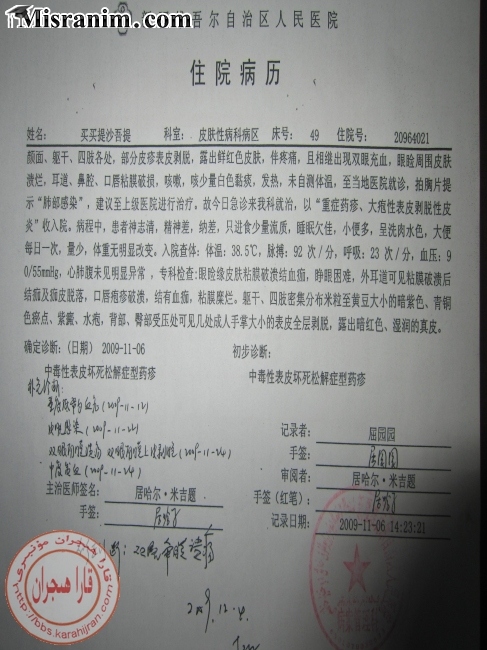 Misranim.com
吾尔自治区人民医院
住院病历
姓名: 买买提沙吾提 科室: 皮肤性病科病区 床号: 49 住院号: 20964021
颜面、躯干、四肢各处，部分皮疹表皮剥脱，露出鲜红色皮肤，伴疼痛，且相继出现双眼充血，眼睑周围皮肤
溃烂，耳道、鼻腔、口唇粘膜破损，咳嗽，咳少量白色黏痰，发热，未自测体温，至当地医院就诊，拍胸片提
示“肺部感染”，建议至上级医院进行治疗。故今日急诊来我科就治，以“重症药疹、大疱性表皮剥脱性皮
炎”收入院。病程中，患者神志清，精神差，纳差，只进食少量流质，睡眠欠佳，小便多，呈洗肉水色，大便
每日一次，量少，体重无明显改变。入院查体：体温：38.5℃，脉搏：92 次/分，呼吸：23 次/分，血压：90
/55mmHg，心肺腹未见明显异常，专科检查：眼睑缘皮肤粘膜破溃结血痂，睁眼困难，外耳道可见粘膜破溃后
结痂及痂皮脱落，口唇疱疹破溃，结有血痂，粘膜糜烂。躯干、四肢密集分布米粒至黄豆大小的暗紫色、青铜
色瘀点、紫癜，水疱，背部、臀部受压处可见几处成人手掌大小的表皮全层剥脱，露出暗红色、湿润的真皮。
确定诊断：(日期) 2009-11-06 初步诊断：
中毒性表皮坏死松解症型药疹 中毒性表皮坏死松解症型药疹
补充诊断:
(2009-11-12)
(2009-11-22)
(2009-11-24)
中度贫血 (2009-11-24)
记录者: 屈园园
手签: 屈园园
审阅者: 居哈尔·米吉题
手签(红笔):
记录日期: 2009-11-06 14:23:21
主治医师签名: 居哈尔·米吉题
手签:
2009.12.4.
قارا ھىجران مۇنبىرى
قارا ھىجران
http://bbs.karahijran.com